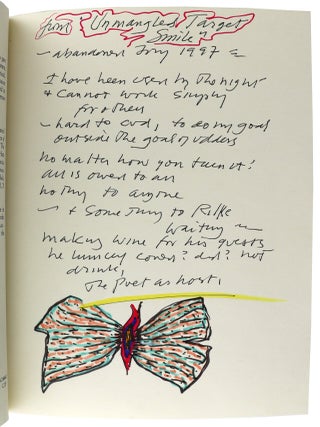 from "Unmangled Target
Smile"
~ abandoned July 1997
I have been used by the night
& cannot work simply
for others
~ hard to end, to do my goal
outside the goal of udders
no matter how you turn it!
all is owed to all
nothing to anyone
~ & something to Rilke
waiting ~
making wine for his guests
he
covers? did? not
drink,
The Poet as host.